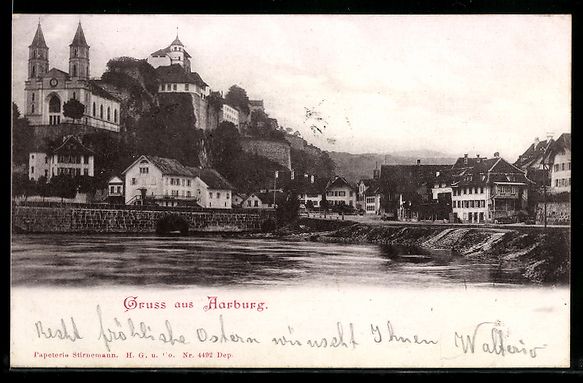 Gruss aus Aarburg.
Recht fröhliche Ostern wünscht Ihnen
Papeterie Stirnemann. H. G. u. Co. Nr. 4492 Dep.